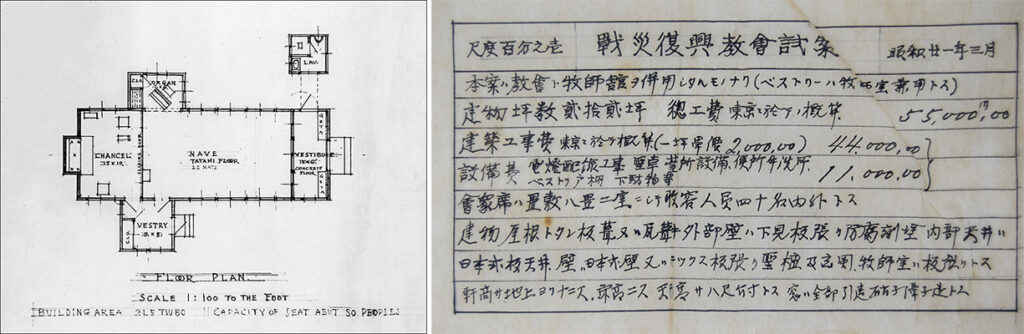 LAV.
ORGAN
CHANCEL
NAVE
TATAMI FLOOR
VESTIBULE
CONCRETE
FLOOR
VESTRY
CLO.
FLOOR PLAN
SCALE 1:100 TO THE FOOT
BUILDING AREA 21.5 TSUBO
CAPACITY OF SEAT ABUT 50. PEOPLES
尺度百分之壱
戦災復興教會試案
昭和廿一年三月
本案ハ教會ト牧師館ヲ併用シタルモノナリ(ベストリーハ牧師室兼用トス)
建物坪数貳拾貳坪 總工費 東京ニ於テノ概算 55,000.00
建築工事費 東京ニ於テノ概算(一坪單價2,000.00) 44.000.00
設備費 電燈配線工事 聖卓 臺所設備 便所手洗所
ベストリー戸棚 下駄箱等
11.000.00
會衆席ハ疊敷八疊二室ニシテ収容人員四十名内外トス
建物屋根トタン板葺又ハ瓦葺 外部壁ハ下見板張リ防腐剤塗 内部天井ハ
日本式板天井 壁ハ日本式壁又ハ板張リ 聖壇及玄関、牧師室ハ板張リトス